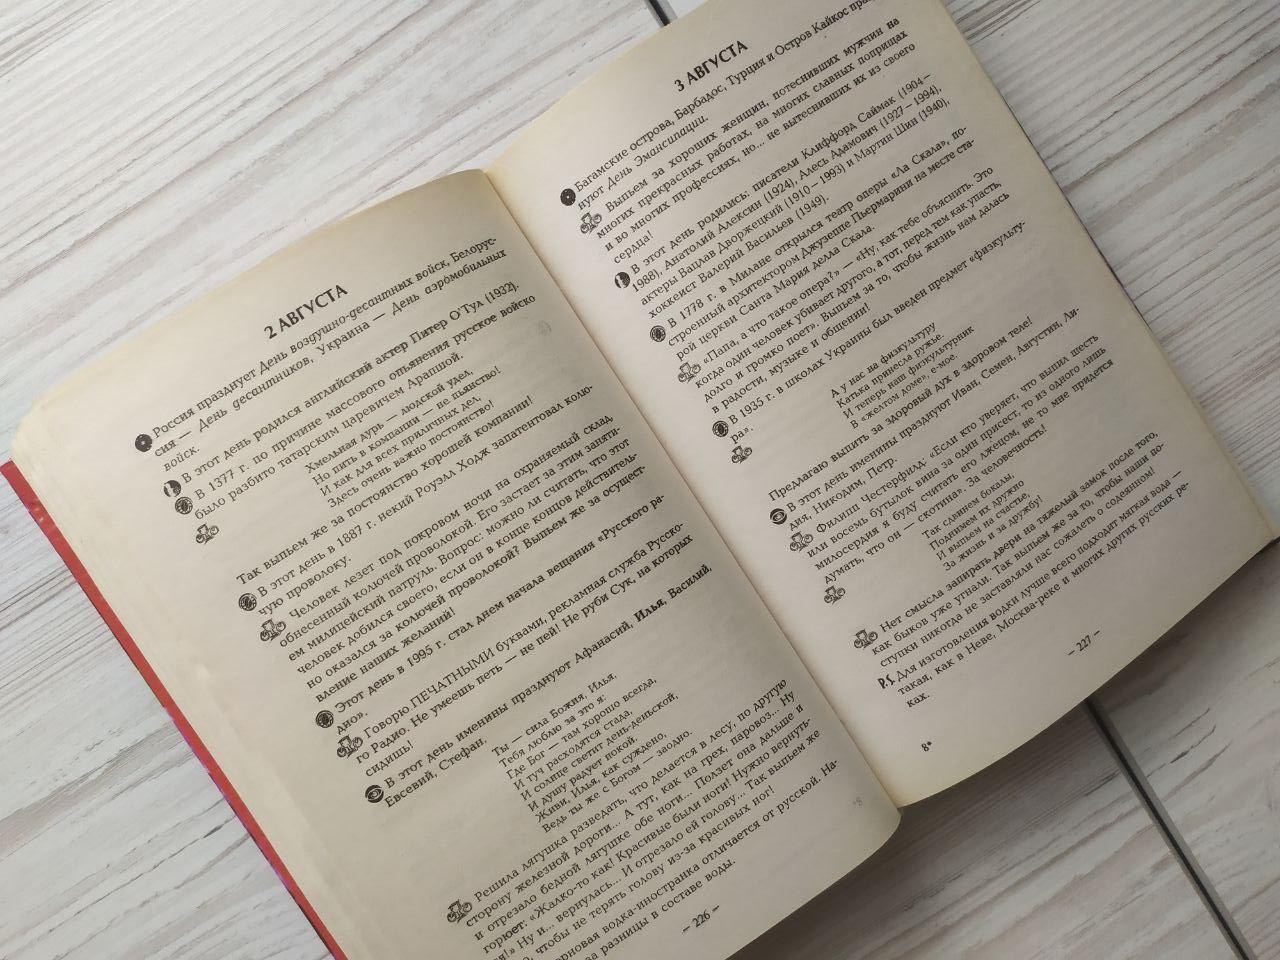 2 АВГУСТА
Россия празднует День воздушно-десантных войск, Белорус-
сия — День десантников, Украина — День аэромобильных
войск.
В этот день родился английский актер Питер О'Тул (1932).
В 1377 г. по причине массового опьянения русское войско
было разбито татарским царевичем Арапшой.
Хмельная дурь — людской удел,
Но пить в компании — не пьянство!
И как для всех приличных дел,
Здесь очень важно постоянство!
Так выпьем же за постоянство хорошей компании!
В этот день в 1887 г. некий Роуэлл Ходж запатентовал колю-
чую проволоку.
Человек лезет под покровом ночи на охраняемый склад,
обнесенный колючей проволокой. Его застает за этим заняти-
ем милицейский патруль. Вопрос: можно ли считать, что этот
человек добился своего, если он в конце концов действитель-
но оказался за колючей проволокой? Выпьем же за осущест-
вление наших желаний!
Этот день в 1995 г. стал днем начала вещания «Русского ра-
дио».
Говорю ПЕЧАТНЫМИ буквами, рекламная служба Русско-
го Радио. Не умеешь петь — не пей! Не руби Сук, на которых
сидишь!
В этот день именины празднуют Афанасий, Илья, Василий,
Евсевий, Стефан.
Ты — сила Божия, Илья,
Тебя люблю за это я:
Где Бог — там хорошо всегда,
И туч расходятся стада,
И солнце светит день-деньской,
И душу радует покой.
Живи, Илья, как суждено,
Ведь ты же с Богом — заодно.
Решила лягушка разведать, что делается в лесу, по другую
сторону железной дороги... А тут, как на грех, паровоз... Ну
и отрезало бедной лягушке обе ноги... Ползет она дальше и
горюет: «Жалко-то как! Красивые были ноги! Нужно вернуть-
ся!» Ну и... вернулась... И отрезало ей голову... Так выпьем же
то, чтобы не терять голову из-за красивых ног!
рновая водка-иностранка отличается от русской. На-
за разницы в составе воды.
– 226 –
3 АВГУСТА
Багамские острова, Барбадос, Турция и Остров Кайкос
нуют День Эмансипации.
Выпьем за хороших женщин, потеснивших мужчин на
многих прекрасных работах, на многих славных поприщах
и во многих профессиях, но... не вытеснивших их из своего
сердца!
В этот день родились: писатели Клиффорд Саймак (1904–
1988), Анатолий Алексин (1924), Алесь Адамович (1927–1994),
актеры Вацлав Дворжецкий (1910–1993) и Мартин Шин (1940),
хоккеист Валерий Васильев (1949).
В 1778 г. в Милане открылся театр оперы «Ла Скала», по-
строенный архитектором Джузеппе Пьермарини на месте ста-
рой церкви Санта Мария делла Скала.
«Папа, а что такое опера?» — «Ну, как тебе объяснить. Это
когда один человек убивает другого, а тот, перед тем как упасть,
долго и громко поет». Выпьем за то, чтобы жизнь нам дала
радости, музыке и общении!
В 1935 г. в школах Украины был введен предмет «физкульту-
ра».
А у нас на физкультуру
Катька принесла ружье.
И теперь наш физкультурник
В «желтом доме», е-мое.
Предлагаю выпить за здоровый дух в здоровом теле!
В этот день именины празднуют Иван, Семен, Августин, Ли-
дия, Никодим, Петр.
Филипп Честерфилд: «Если кто уверяет, что выпил шесть
или восемь бутылок вина за один присест, то из одного лишь
милосердия я буду считать его лжецом, не то мне придется
думать, что он — скотина». За человечность!
Так сдвинем бокалы
Поднимем их дружно
И выпьем на счастье,
За жизнь и за дружбу!
Нет смысла запирать двери на тяжелый замок после того,
как быков уже угнали. Так выпьем же за то, чтобы наши по-
ступки никогда не заставляли нас сожалеть о содеянном!
P.S. Для изготовления водки лучше всего подходит мягкая вода —
такая, как в Неве, Москва-реке и многих других русских ре-
ках.
– 227 –
8*